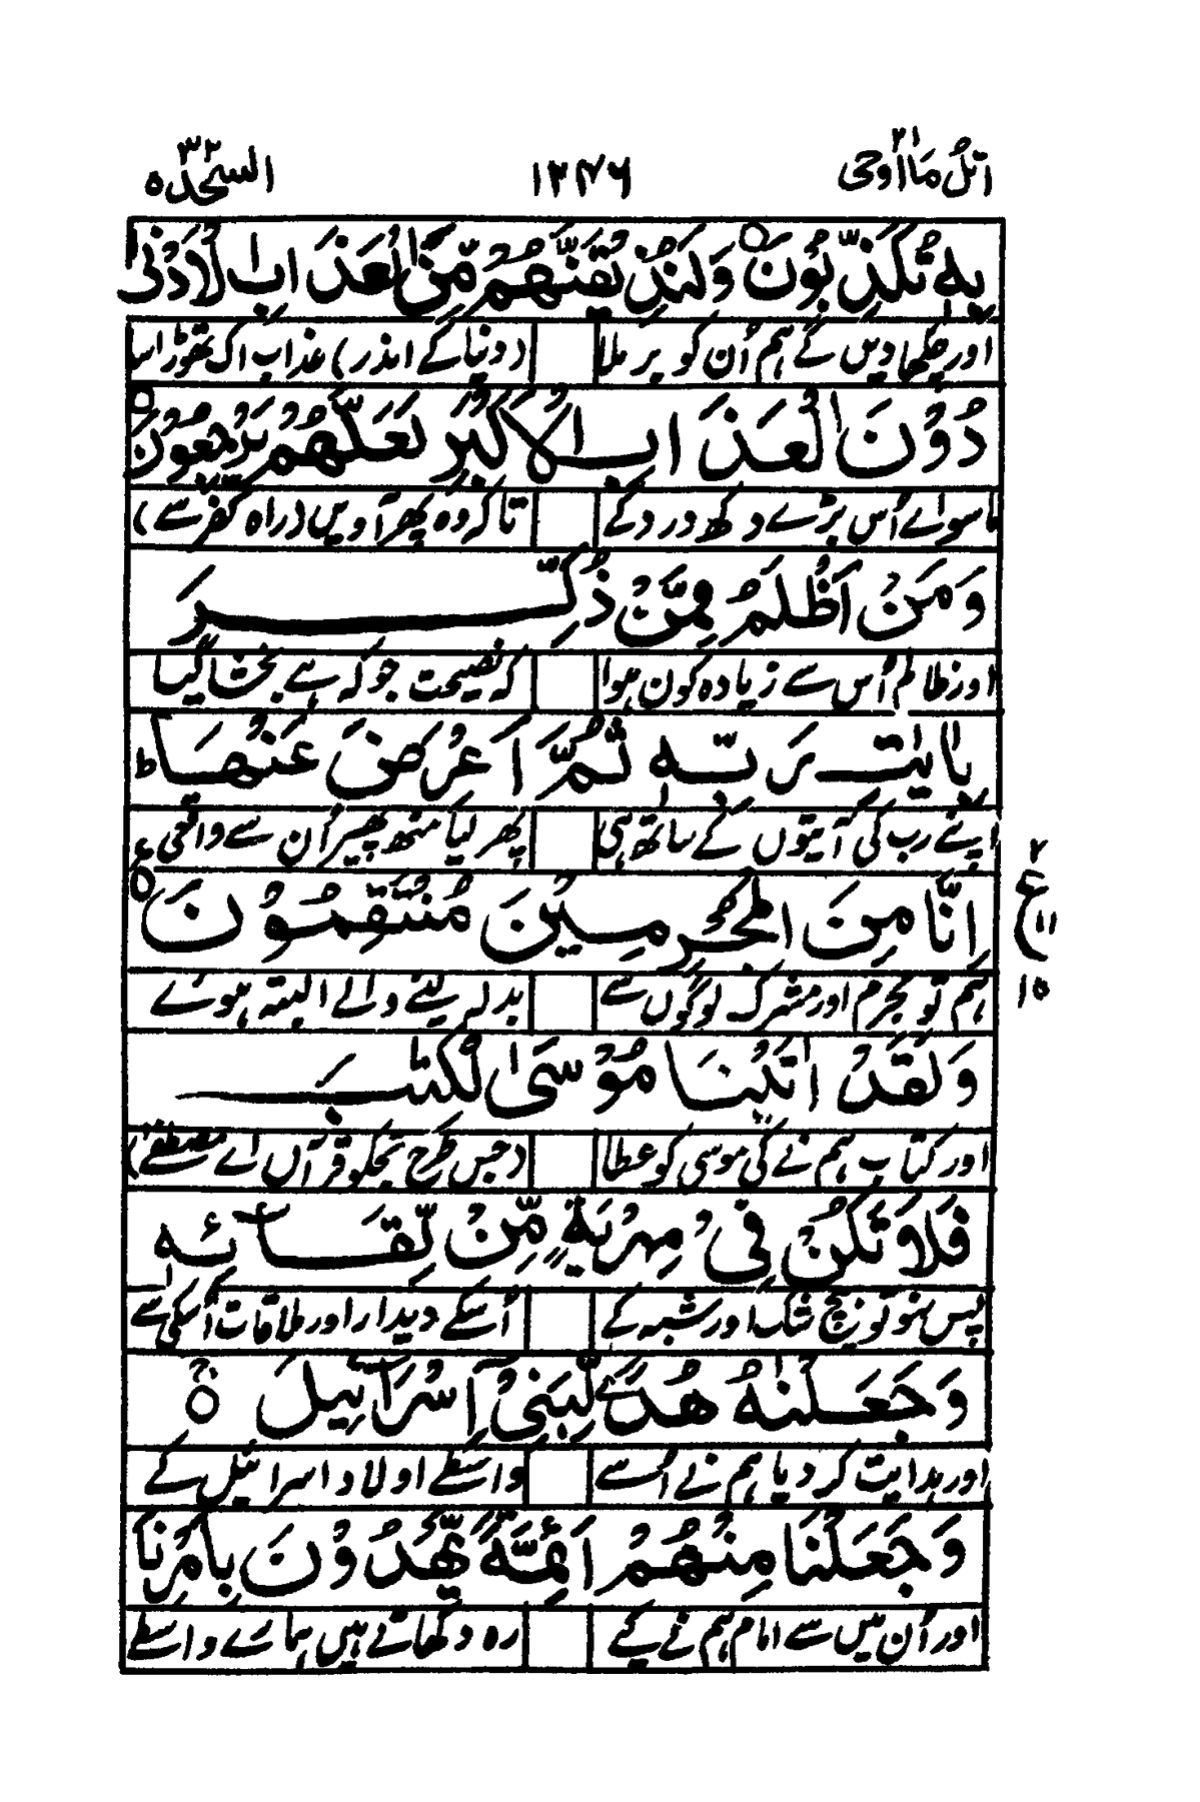 اتل مااوحی ۲۱ ۱۲۷۶ السجدہ ۳۲
بِهٖ تُكَذِّبُوْنَ ○ وَلَنُذِيْقَنَّهُمْ مِّنَ الْعَذَابِ الْاَدْنٰى
اور چکھا دیں گے ہم اُن کو بر ملا (دنیا کے اندر) عذاب اک تھوڑا سا
دُوْنَ الْعَذَابِ الْاَكْبَرِ لَعَلَّهُمْ يَرْجِعُوْنَ ○
ماسوائے اُس بڑے دکھ درد کے تاکہ وہ پھر آویں (راہ کفر سے)
وَمَنْ اَظْلَمُ مِمَّنْ ذُكِّرَ
اور ظالم اُس سے زیادہ کون ہوا کہ نصیحت جو کہ ہے بخشا گیا
بِاٰيٰتِ رَبِّهٖ ثُمَّ اَعْرَضَ عَنْهَا ؕ
اپنے رب کی آیتوں کے ساتھ ہی پھر لیا منھ پھیر اُن سے واقعی
اِنَّا مِنَ الْمُجْرِمِيْنَ مُنْتَقِمُوْنَ ○
۲ ع ۱۱ ۱۵
ہم تو مجرم اور مشرک لوگوں سے بدلہ لینے والے البتہ ہوئے
وَلَقَدْ اٰتَيْنَا مُوْسَى الْكِتٰبَ
اور کتاب ہم نے کی موسی کو عطا (جس طرح تجکو قرآں اے مصطفےٰ)
فَلَا تَكُنْ فِىْ مِرْيَةٍ مِّنْ لِّقَآئِهٖ
پس نہو تو بیچ شک اور شبہ کے اُسکے دیدار اور ملاقات اُسکی سے
وَجَعَلْنٰهُ هُدًى لِّبَنِىْٓ اِسْرَآئِيْلَ ○
اور ہدایت کر دیا ہم نے اُسے واسطے اولاد اسرائیل کے
وَجَعَلْنَا مِنْهُمْ اَئِمَّةً يَّهْدُوْنَ بِاَمْرِنَا
اور اُن میں سے امام ہم نے کیے رہ دکھاتے ہیں ہمارے واسطے